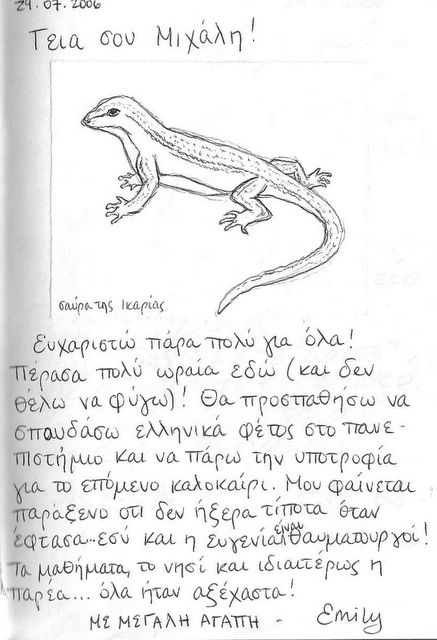 29.07.2006
Γεια σου Μιχάλη!
σαύρα της Ικαρίας
Ευχαριστώ πάρα πολύ για όλα!
Πέρασα πολύ ωραία εδώ (και δεν
θέλω να φύγω)! Θα προσπαθήσω να
σπουδάσω ελληνικά φέτος στο πανε-
πιστήμιο και να πάρω την υποτροφία
για το επόμενο καλοκαίρι. Μου φαίνεται
παράξενο οτι δεν ήξερα τίποτα όταν
έφτασα.. εσύ και η ευγενία είναι θαυματουργοί!
Τα μαθήματα, το νησί και ιδιαιτέρως η
παρέα... όλα ήταν αξέχαστα!
ΜΕ ΜΕΓΑΛΗ ΑΓΑΠΗ - Emily